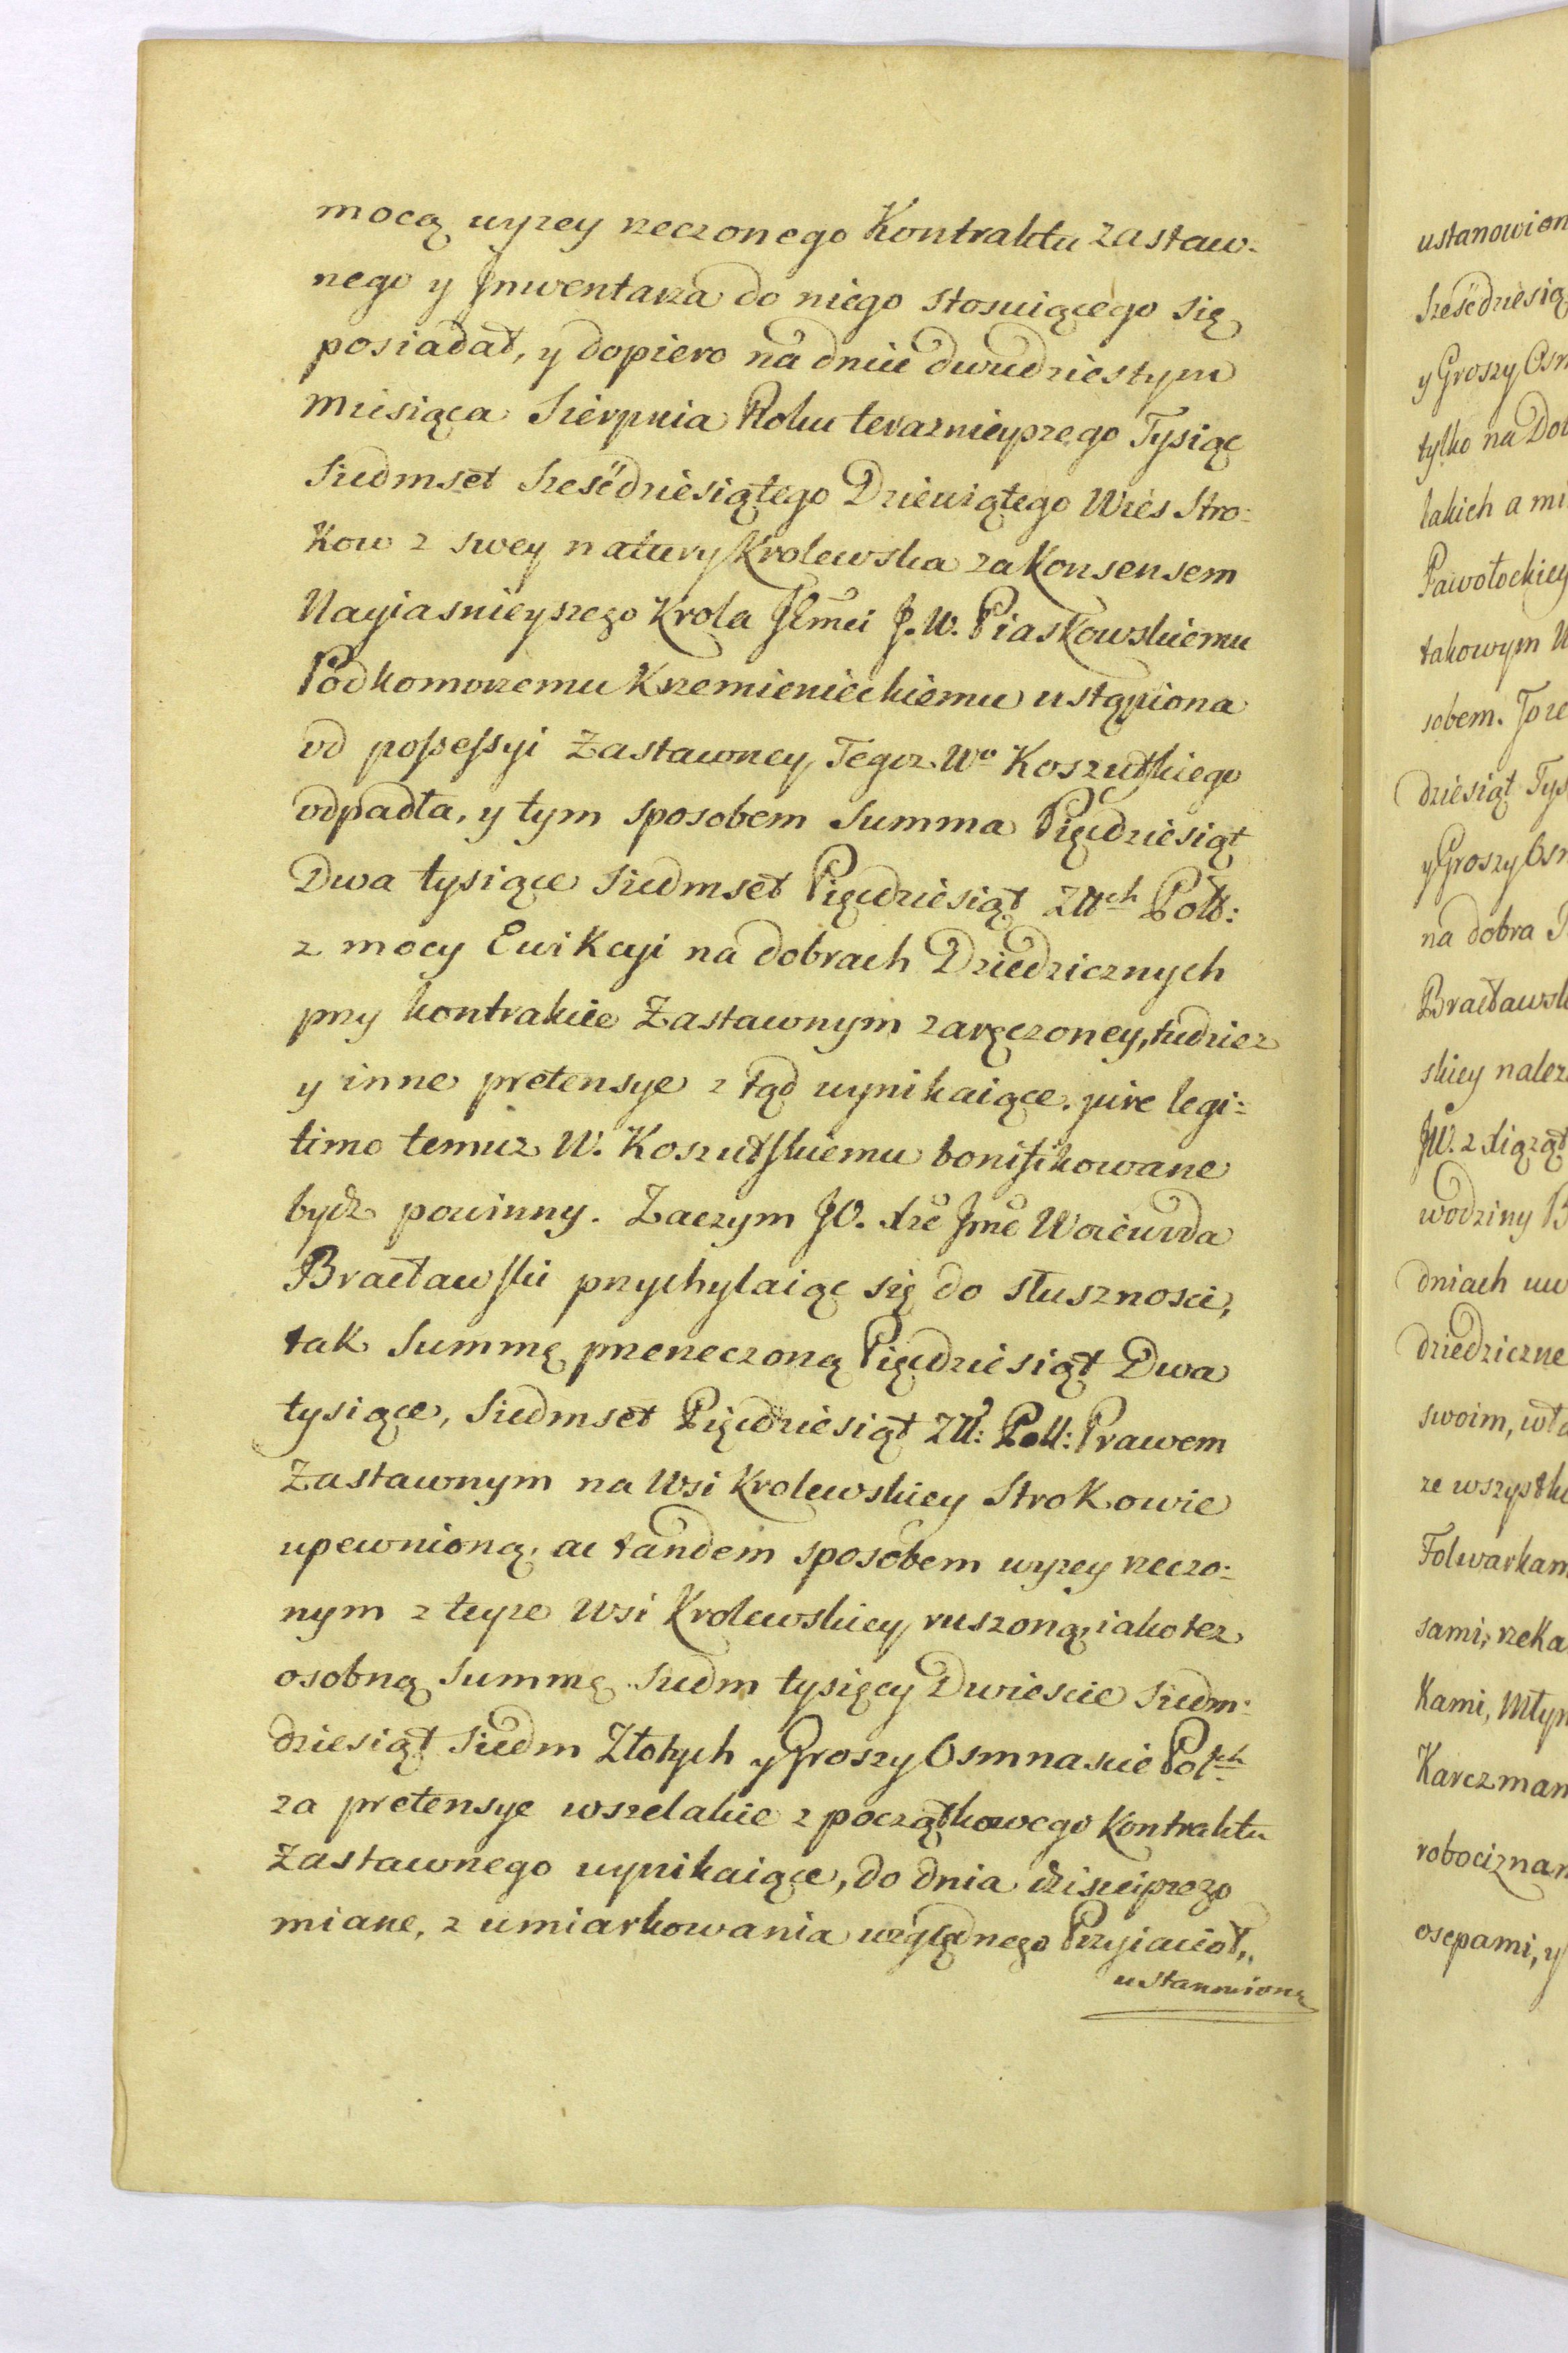 mocą wyzey rzeczonego Kontraktu zastaw-
nego y Jnwentarza do niego stosuiącego się
posiadał, y dopiero na dniu dwudziestym
Miesiąca Sierpnia Roku teraznieyszego Tysiąc
Siedmset Szesćdziesiątego Dziewiątego Wies Stro:
kow z swey natury Krolewska za Konsensem
Nayiasnieyszego Krola Jmci J. W. Piaskowskiemu
Podkomorzemu Krzemienieckiemu ustąpiona
od possessyi Zastawney Tegoz Wo Koszutskiego
odpadła, y tym sposobem Summa Pięcdziesiąt
Dwa tysiące Siedmset Pięcdziesiąt Złłch Poll:
z mocy Ewikcyi na dobrach Dziedzicznych
przy kontrakcie Zastawnym zaręczoney, tudziez
y inne pretensye z tąd wynikaiące. jure legi:
timo temuz W. Koszutskiemu bonifikowane
bydz powinny. Zaczym JO. Xże Jmć Woiewoda
Bracławski przychylaiąc się do słusznosci,
tak Summę przerzeczoną Pięcdziesiąt Dwa
tysiące, Siedmset Pięcdziesiąt Zll: Poll: Prawem
Zastawnym na Wsi Krolewskiey Strokowie
upewnioną, ac tandem sposobem wyzey rzeczo:
nym z teyze Wsi Krolewskiey ruszoną, iako tez
osobną Summę Siedm tysięcy Dwiescie Siedm-
dziesiąt Siedm Złotych y Groszy Osmnascie Polch
za pretensye wszelakie z początkowego Kontraktu
Zastawnego wynikaiące, do dnia dzisieyszego
miane, z umiarkowania względnego Przyiacioł,
ustanowioną
ustanowion
Szesćdziesią
y Groszy Osm
tylko na Dob
lakich a mi
Pawołockiey
takowym W
sobem. Toze
dziesiąt Tys
y Groszy Osm
na dobra
Bracławsk
skiey nalez
JW. z Xiąząt
wodziny B
dniach uw
dziedziczne
swoim, wła
ze wszystki
Folwarkam
sami, rzeka
Kami, Młyn
Karczmam
robociznam
osepami, y